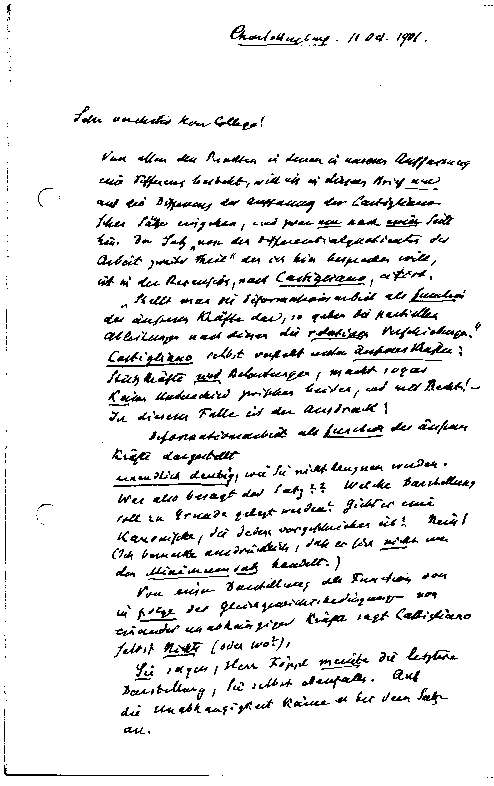 Charlottenburg. 11 Oct. 1901.
Sehr verehrter Herr College!
Von allen den Punkten in denen in unserer Auffassung
eine Differenz besteht, will ich in diesem Brief nur
auf die Differenz der Auffassung der Castigliano
schen Sätze eingehen, und zwar nur nach einer Seite
hin. Der Satz „von den Differentialquotienten der
Arbeit zweiter Theil" den ich hier besprechen will,
ist in der Recension, nach Castigliano, citirt.
„Stellt man die Deformationsarbeit als function
der äusseren Kräfte dar, so geben die partiellen
Ableitungen nach diesen die relativen Verschiebungen."
Castigliano selbst versteht unter äusseren Kräften:
Stützkräfte und Belastungen, macht sogar
keinen Unterschied zwischen beiden, und mit Recht! –
In diesem Falle ist der Ausdruck:
Deformationsarbeit als function der äusseren
Kräfte dargestellt
unendlich deutig, wie Sie nicht leugnen werden.
Was also besagt der Satz?? Welche Darstellung
soll zu Grunde gelegt werden? Giebt es eine
Kanonische, die jedem vorgeschrieben ist? Nein!
(Ich bemerke ausdrücklich, daß es sich nicht um
den Minimumsatz handelt.)
Von einer Darstellung als Function von
in folge der Gleichgewichtsbedingungen von
einander unabhängiger Kräfte sagt Castigliano
selbst Nichts (oder wo?),
Sie sagen, Herr Föppl meinte die letztere
Darstellung, Sie selbst ebenfalls. Auf
die Unabhängigkeit käme es bei dem Satze
an.